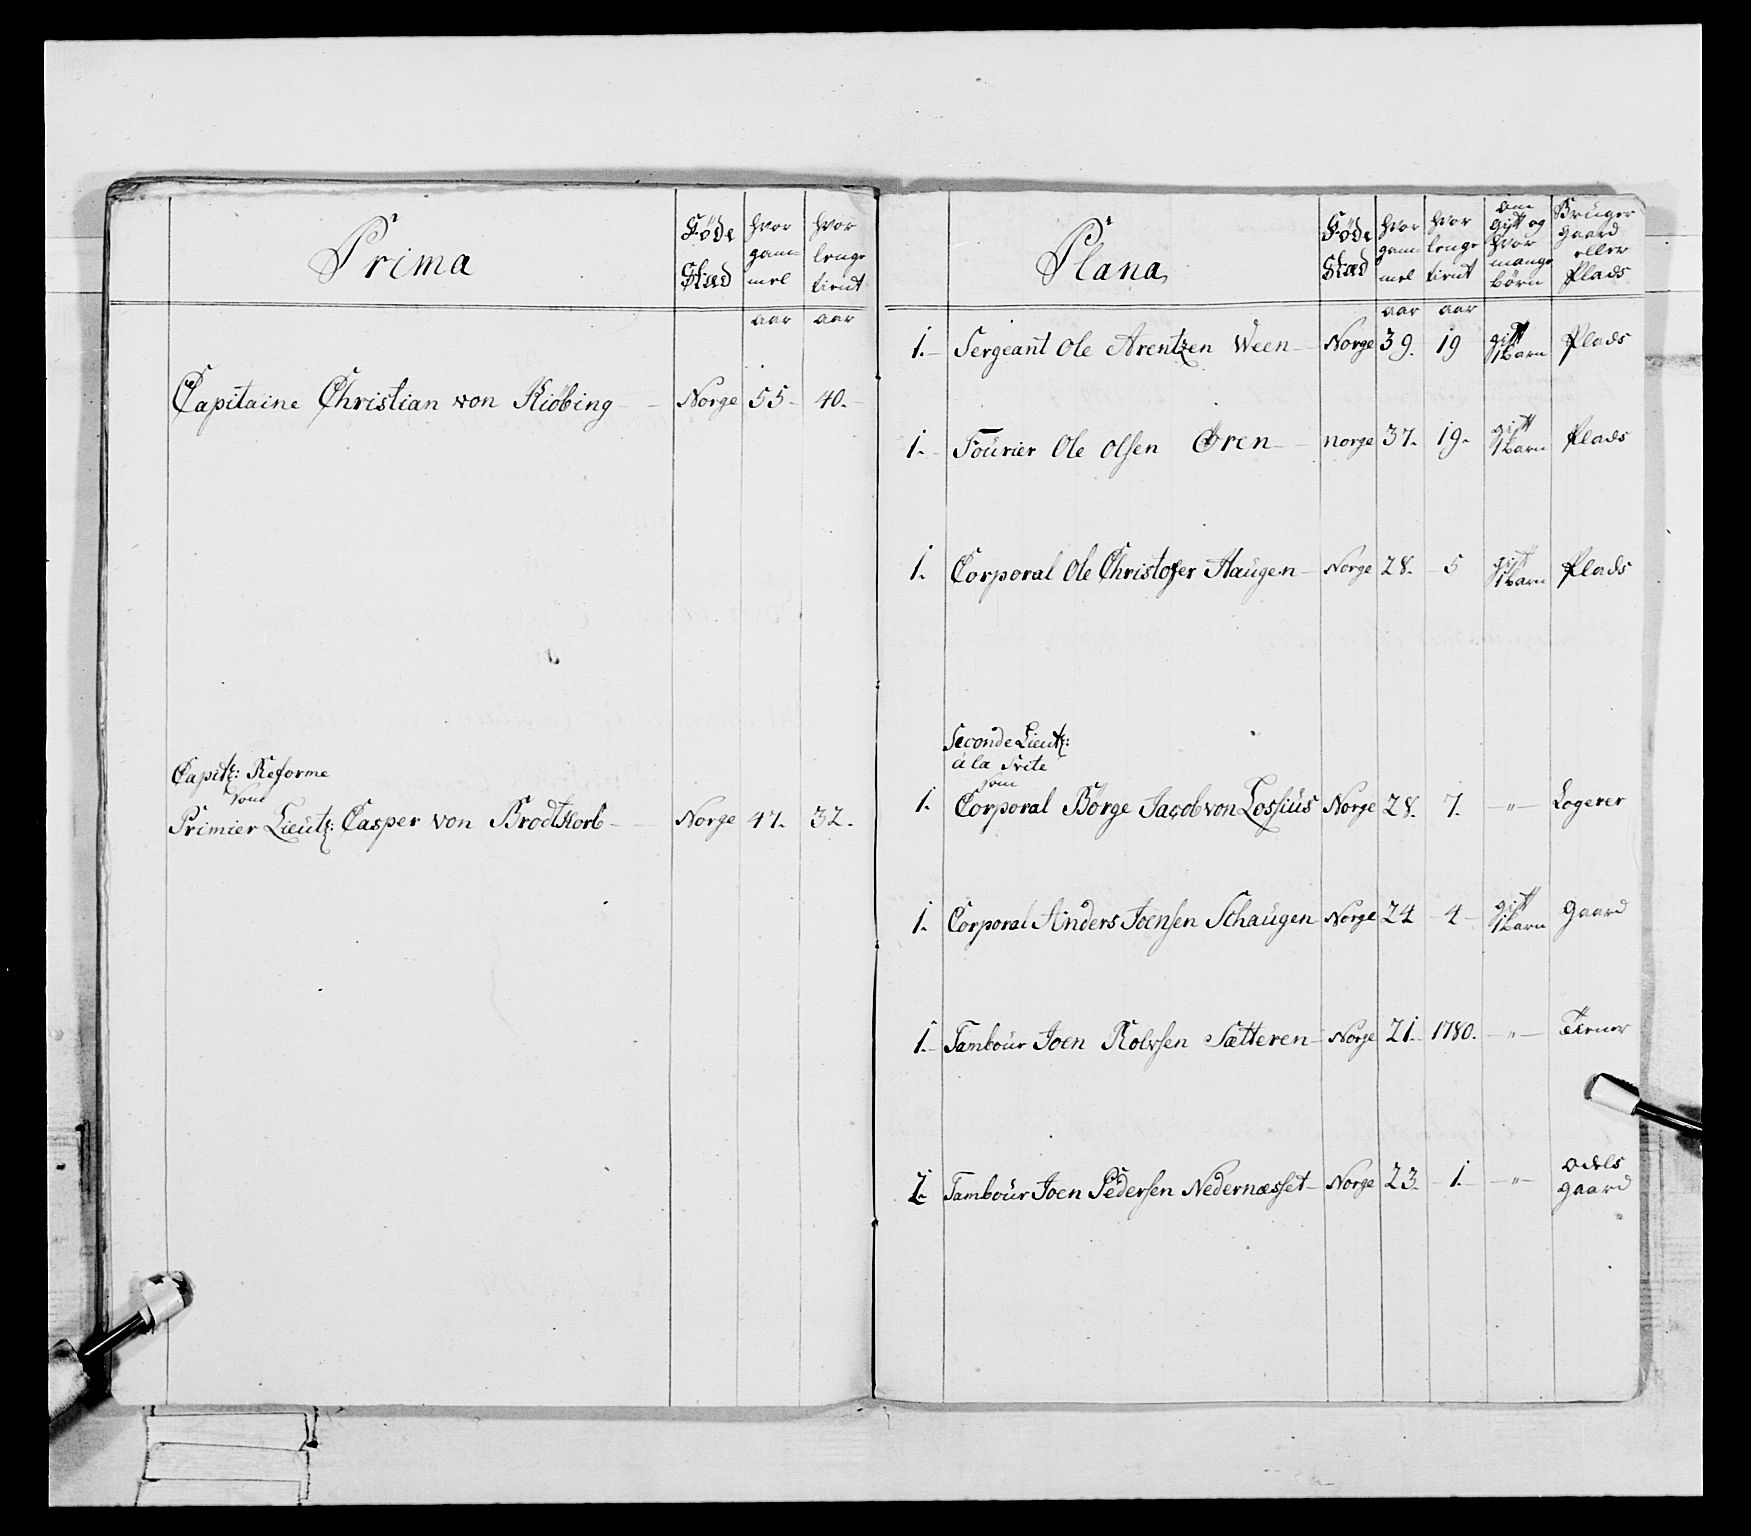 Prima
Føde Stæd
hvor gam- mel
hvor lenge tient
aar aar
Capitaine Christian von Kiöbing Norge 55 40.
Capitz: Reforme
som
Primier Lieutz: Casper von Brodtkorb Norge 47. 32.
Plana,
Føde Stæd
hvor gam- mel
hvor lenge tient
om gift og hvor mange børn
Bruger gaard eller Plads
aar aar
1. Sergeant Ole Arentzen Ween Norge 39. 19 gift 1 barn Plads
1. Fourier Ole Olsen Ören norge 37. 19. gift 1 barn Plads
1. Corporal Ole Christofer Haugen Norge 28. 5 gift 1 barn Plads
Seconde Lieutz:
a la Svite
som
1. Corporal Börge Jacob von Lossius Norge 28. 7. " Logerer
1. Corporal Anders Joensen Schaugen Norge 24 4 gift 1 barn gaard
1. Tambour Joen Rolvsen Sætteren Norge 21. 1780. " Tiener
1. Tambour Joen Pedersen Nedernæsset Norge 23. 1. " Odels gaard